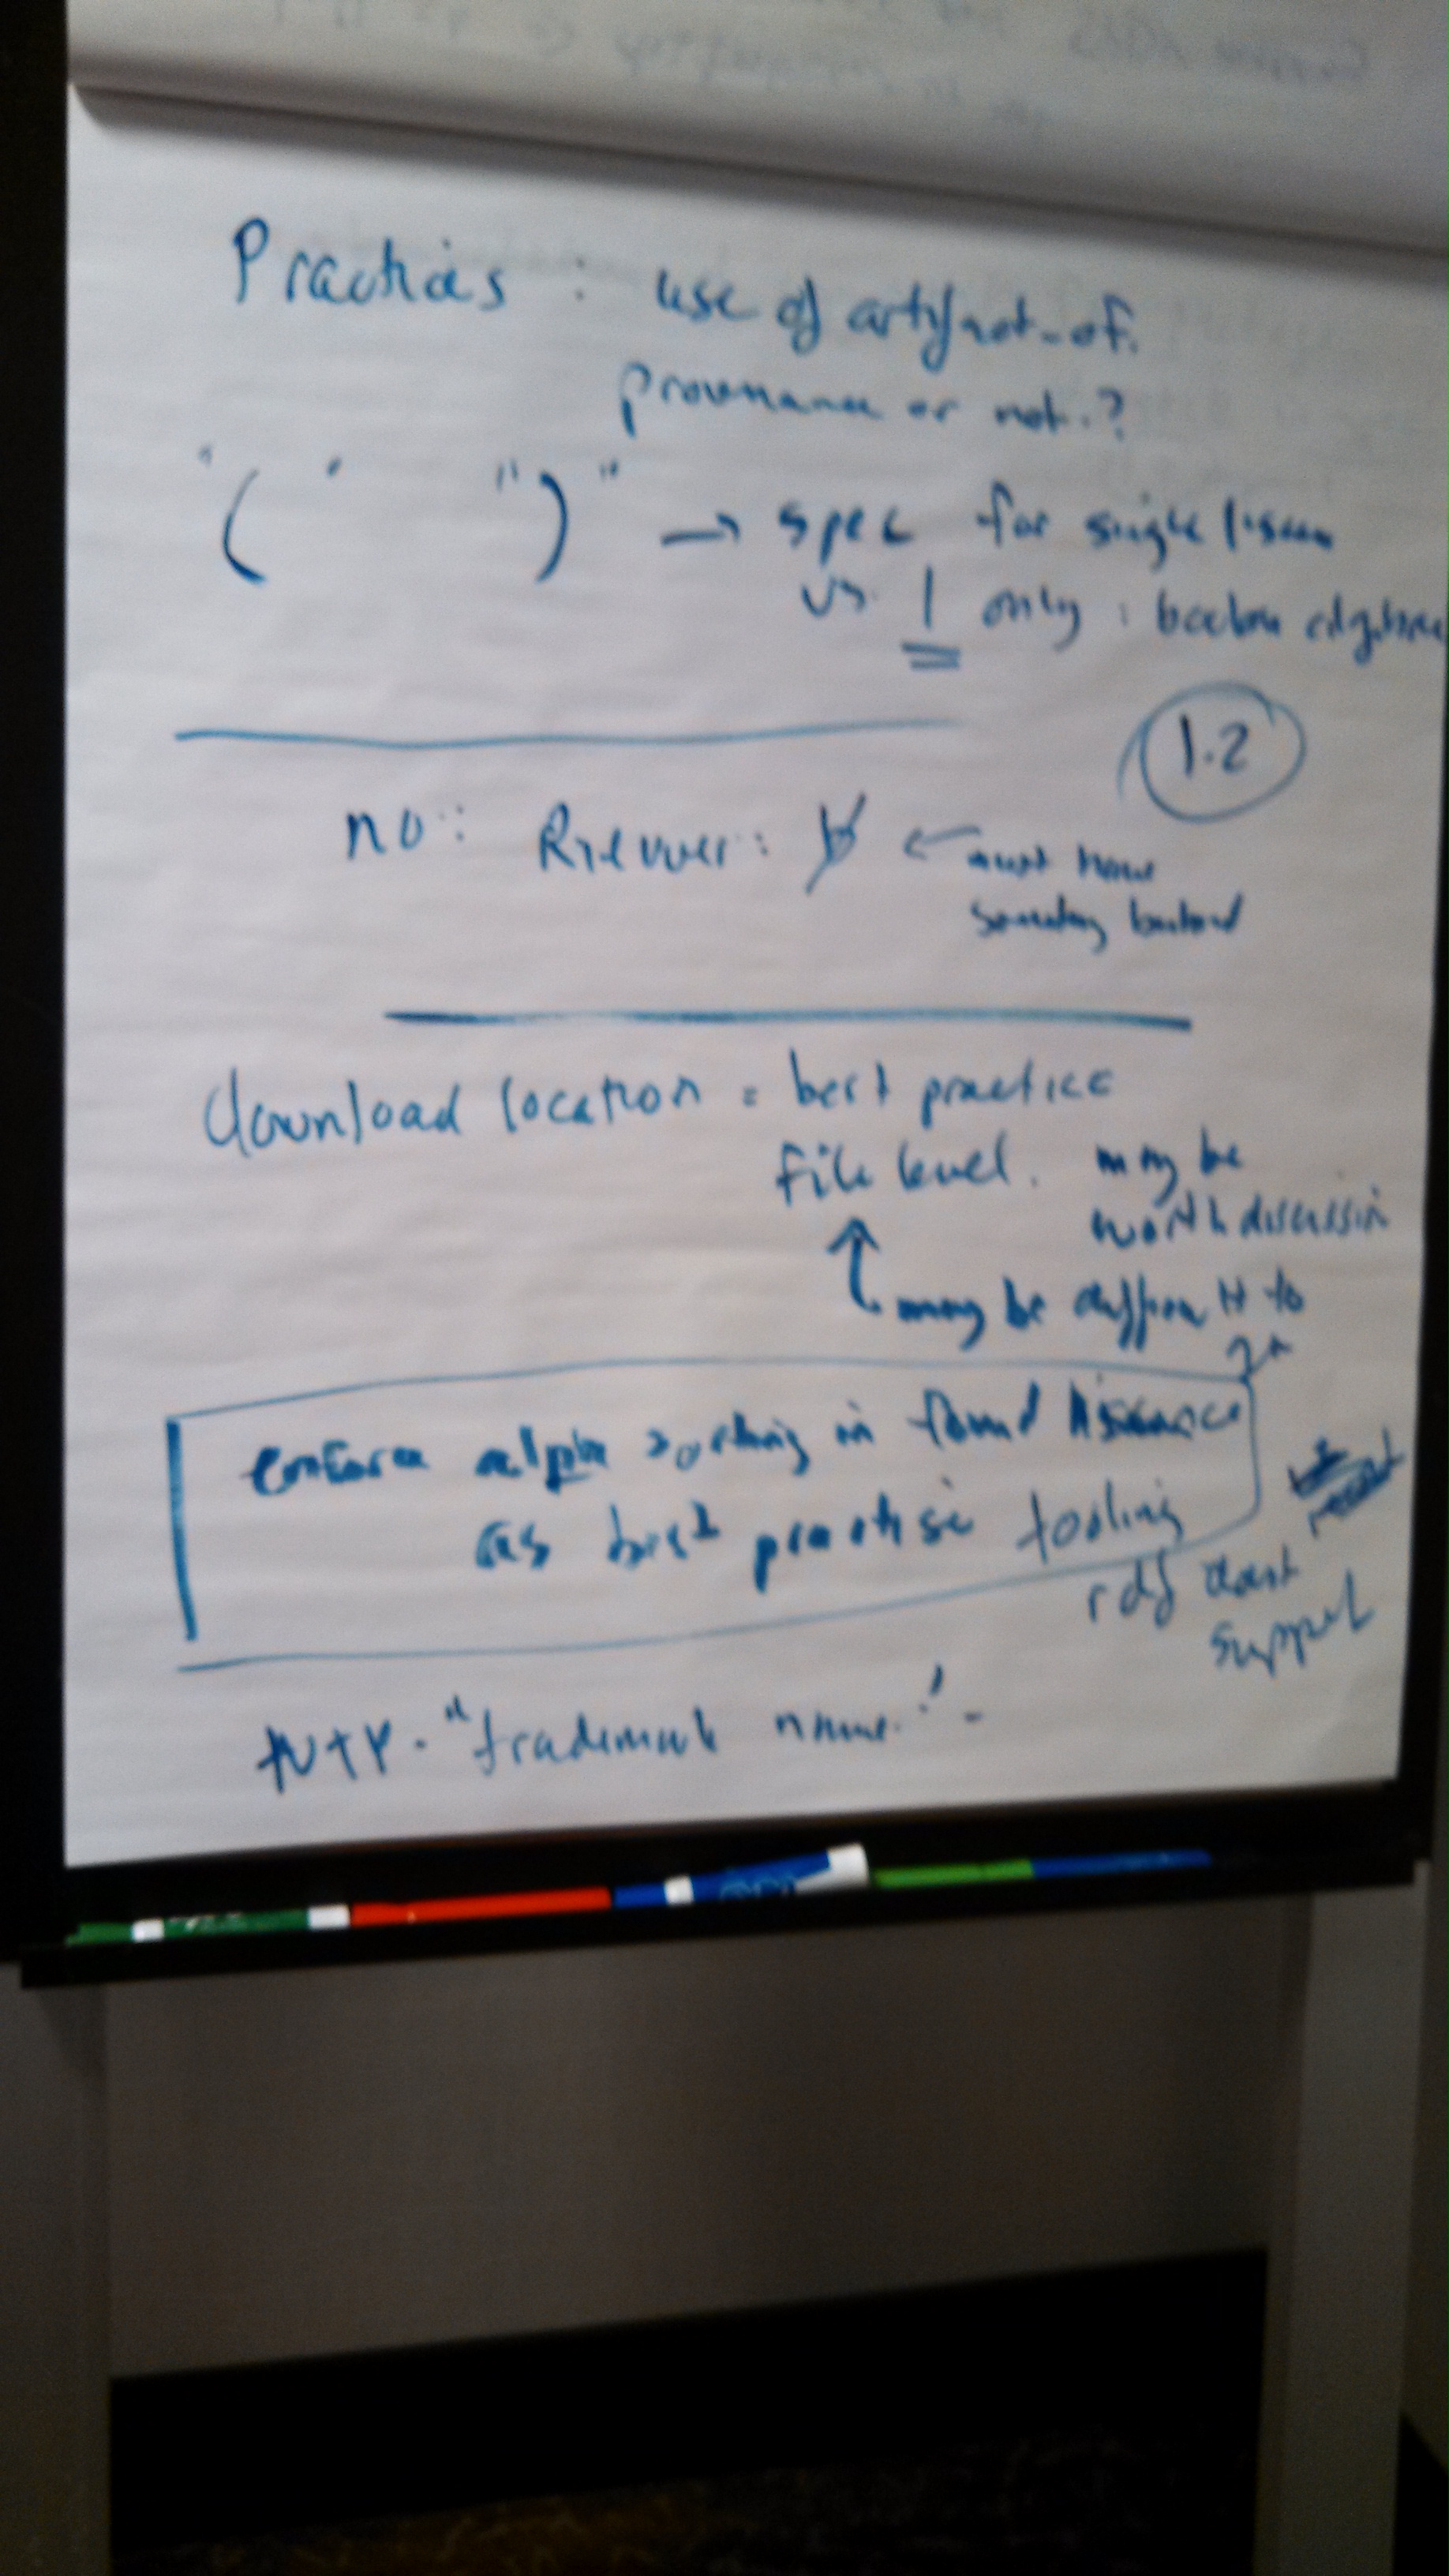 Practices : use of artifact-of.
provenance or not.?
" ( " ") " → spec for single license
vs. 1 only : boolean algebra
1.2
no: Reviewer: ← must have
something
download location = best practice
file level. may be
worth discussin
may be to
enforce alpha sorting in found license
as best practise tooling
rdf dont
support
NTP. "trademark name." -